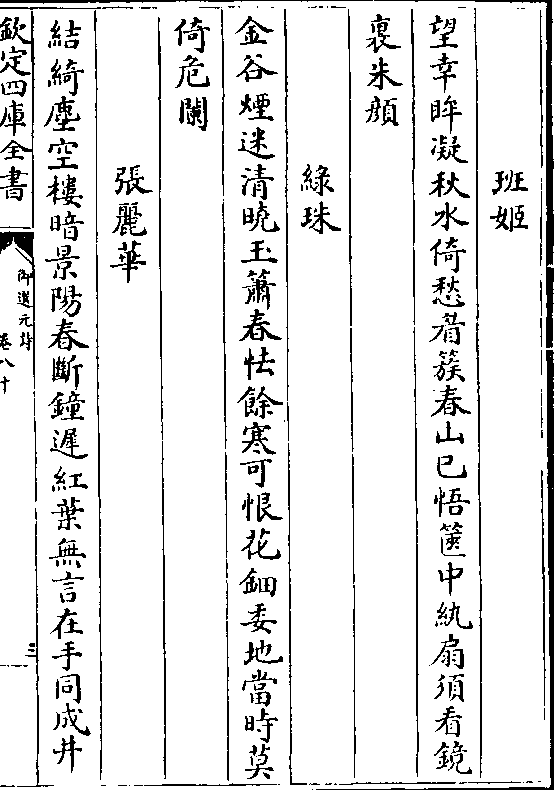 班姬
望幸眸凝秋水倚愁眉簇春山已悟篋中紈扇須看鏡
裏朱顔
綠珠
金谷煙迷清曉玉簫春怯餘寒可恨花鈿委地當時莫
倚危闌
張麗華
結綺塵空樓暗景陽春斷鐘遲紅葉無言在手同成井
欽定四庫全書
御選元詩
卷八十
三